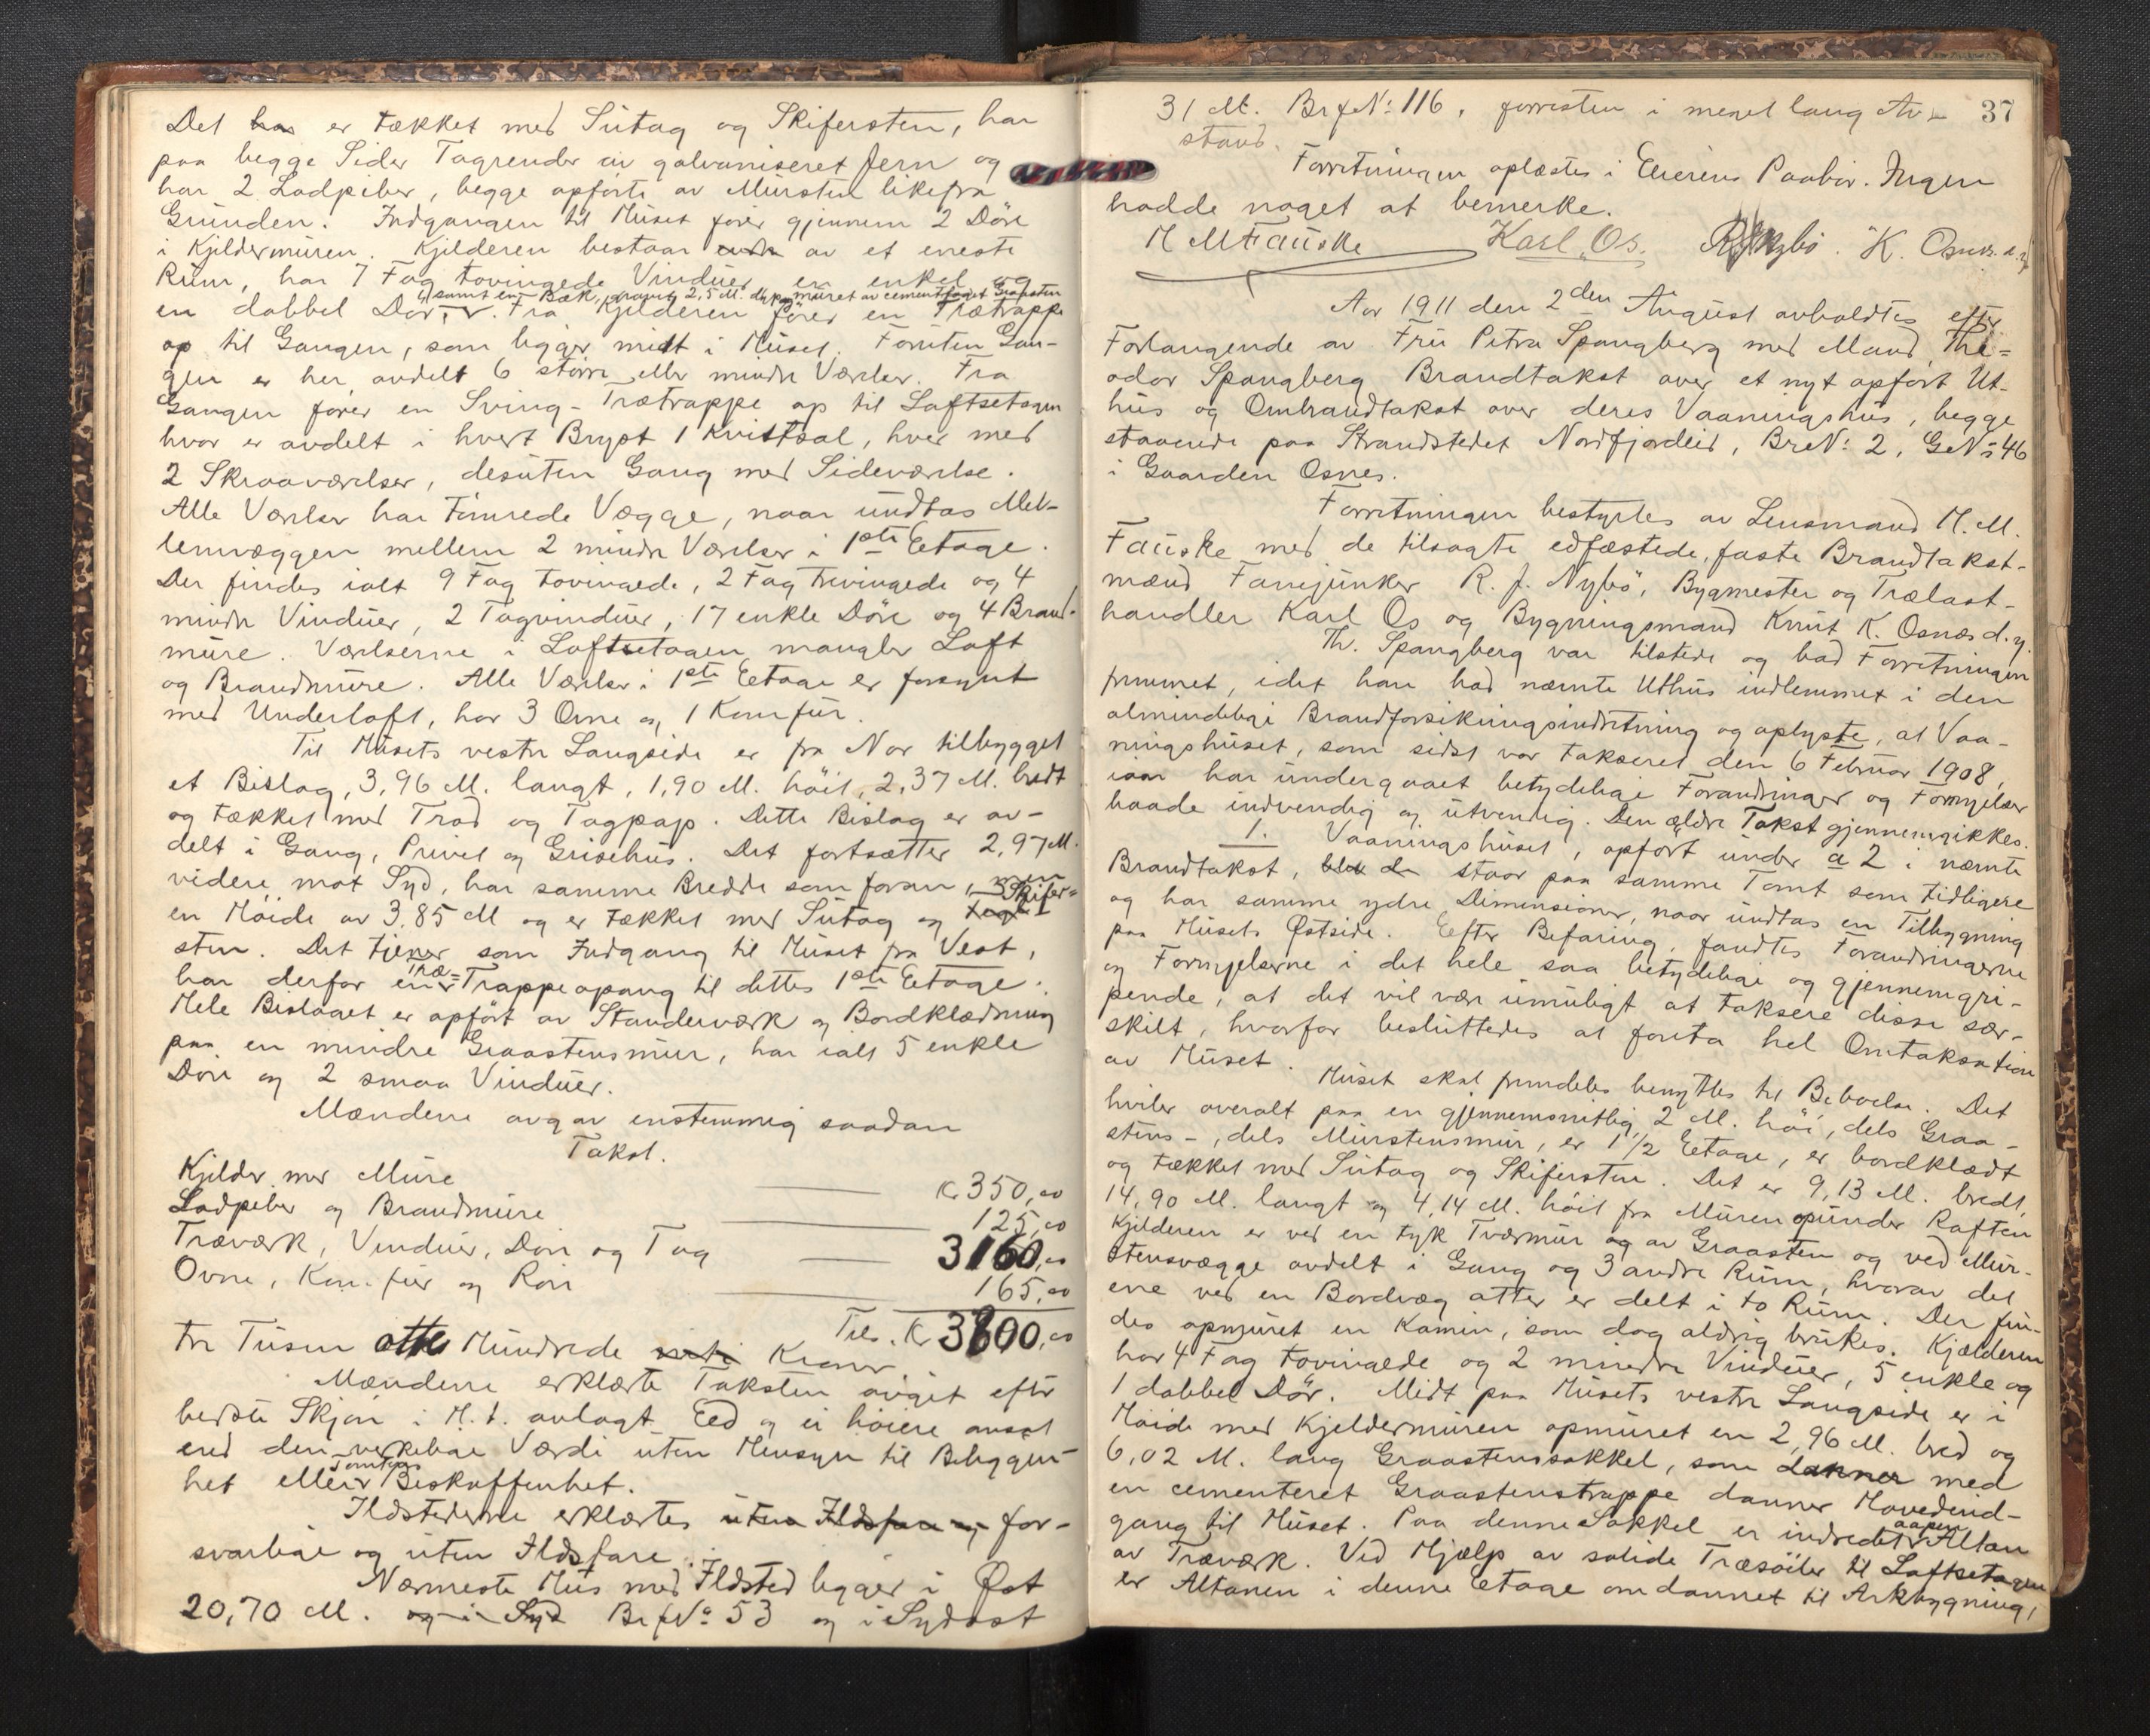 Det har er tækket med Sutag og Skifersten, har
paa begge Sider Tagrender av galvaniseret Jern og
har 2 Ladpiber, begge opførte av Mursten likefra
Grunden. Indgangen til Huset fører gjennem 2 Døre
i Kjeldermuren. Kjelderen bestaar av et eneste
Rum, har 7 Fag tovingede Vinduer, en enkel og
samt en Bæk, gravet 2,5 M. dyp, muret av cementfaget Graasten
en dobbel Dør. Fra Kjelderen fører en Trætrappe
op til Gangen, som ligger midt i Huset. Foruten Gan-
gen er her avdelt 6 større eller mindre Værelser. Fra
Gangen fører en Sving-Trætrappe op til Loftsetagen
hvor er avdelt i hvert Bryst 1 Kvistsal, hver med
2 Skraaværelser, desuten Gang med Sideværelse.
Alle Værelser har tømrede Vægge, naar undtas Mel-
lemvæggen mellem 2 mindre Værelser i 1ste Etage.
Der findes ialt 9 Fag tovingede, 2 Fag trevingede og 4
mindre Vinduer, 2 Tagvinduer, 17 enkle Døre og 4 Brand-
mure. Værelserne i Loftsetagen mangler Loft
og Brandmure. Alle Værelser i 1ste Etage er forsynt
med Underloft, har 3 Ovne og 1 Komfur.
Til Husets vestre Langside er fra Nor tilbygget
et Bislag, 3,96 M. langt, 1,90 M. høit, 2,37 M. bredt
og tækket med Trod og Tagpap. Dette Bislag er av-
delt i Gang, Privet og Grisehus. Det fortsætter 2,97 M.
videre mot Syd, har samme Bredde som foran, men
en Høide av 3,85 M og er tækket med Sutag og tegl Skifer-
sten. Det tjener som Indgang til Huset fra Vest,
har derfor en Træ-Trappeopgang til dettes 1ste Etage.
Hele Bislaget er opført av Standerværk og Bordklædning
paa en mindre Graastensmur, har ialt 5 enkle
Døre og 2 smaa Vinduer.
Mændene avgav enstemmig saadan
Takst.
Kjelder med Mure Kr 350,00
Ladpiber og Brandmure 125,00
Træværk, Vinduer, Døre og Tag 3160,00
Ovne, Komfur og Rør 165,00
Tils. Kr 3800,00
tre Tusen otte Hundrede Kroner
Mændene erklærte Taksten avgit efter
bedste Skjøn i H. t. avlagt Eed og ei høiere ansat
end den verkelige Værdi uten Hensyn til Beliggen-
het eller Tomtens Beskaffenhet.
Ildstederne erklærtes uten Ildsfare og for-
svarlige og uten Ildsfare.
Nærmeste Hus med Ildsted ligger i Øst
20,70 M. og i Syd Br f No 53 og i Sydost
37
31 M. Br f No: 116, forresten i meget lang Av-
stand.
Forretningen oplæstes i Eierens Paahør. Ingen
hadde noget at bemerke.
H M Fauske Karl Os. R J Nybø. K. Osnes d.y
Aar 1911 den 2den August avholdtes efter
Forlangende av Fru Petra Spangberg med Mand The=
odor Spangberg Brandtakst over et nyt opført Ut-
hus og Ombrandtakst over deres Vaaningshus, begge
staaende paa Strandstedet Nordfjordeid, BrN: 2, GN: 46
i Gaarden Osnes.
Forretningen bestyrtes av Lensmand H. M.
Fauske med de tilsagte edfæstede, faste Brandtakst-
mænd Fanejunker R. J. Nybø, Bygmester og Trælast-
handler Karl Os og Bygningsmand Knut K. Osnes d.y.
Th. Spangberg var tilstede og bad Forretningen
fremmet, idet han bad nævnte Uthus indlemmet i den
almindelige Brandforsikringsindretning og oplyste, at Vaa-
ningshuset, som sidst var takseret den 6 Februar 1908,
iaar har undergaaet betydelige Forandringer og Fornyelser
baade indvendig og utvendig. Den ældre Takst gjennemgikkes.
1. Vaaningshuset, opført under a 2 i nævnte
Brandtakst, staar paa samme Tomt som tidligere
og har samme ydre Dimensioner, naar undtas en Tilbygning
paa Husets Østside. Efter Befaring, fandtes Forandringerne
og Fornyelserne i det hele saa betydelige og gjennemgri-
pende, at det vil være umuligt at taksere disse sær-
skilt, hvorfor besluttedes at foreta hel Omtaksation
av Huset. Huset skal fremdeles benyttes til Beboelse. Det
hviler overalt paa en gjennemsnitlig 2 M. høi, dels Graa-
stens-, dels Murstensmur, er 1 1/2 Etage, er bordklædt
og tækket med Sutag og Skifersten. Det er 9,13 M. bredt,
14,90 M. langt og 4,14 M. høit fra Muren op under Raften
Kjelderen er ved en tyk Tværmur og av Graasten og ved Mur-
stensvægge avdelt i Gang og 3 andre Rum, hvorav det
ene ved en Bordvæg atter er delt i to Rum. Der fin-
des opmuret en Kamin, som dog aldrig brukes. Kjælderen
har 4 Fag tovingede og 2 mindre Vinduer, 5 enkle og
1 dobbel Dør. Midt paa Husets vestre Langside er i
Høide med Kjeldermuren opmuret en 2,96 M. bred og
6,02 M. lang Graastenssokkel, som danner med
en cementeret Graastenstrappe danner Hovedind-
gang til Huset. Paa denne Sokkel er indredet aapen Altan
av Træværk. Ved Hjælp av solide Træsøiler til Loftsetagen
er Altanen i denne Etage omdannet til Arkbygning,